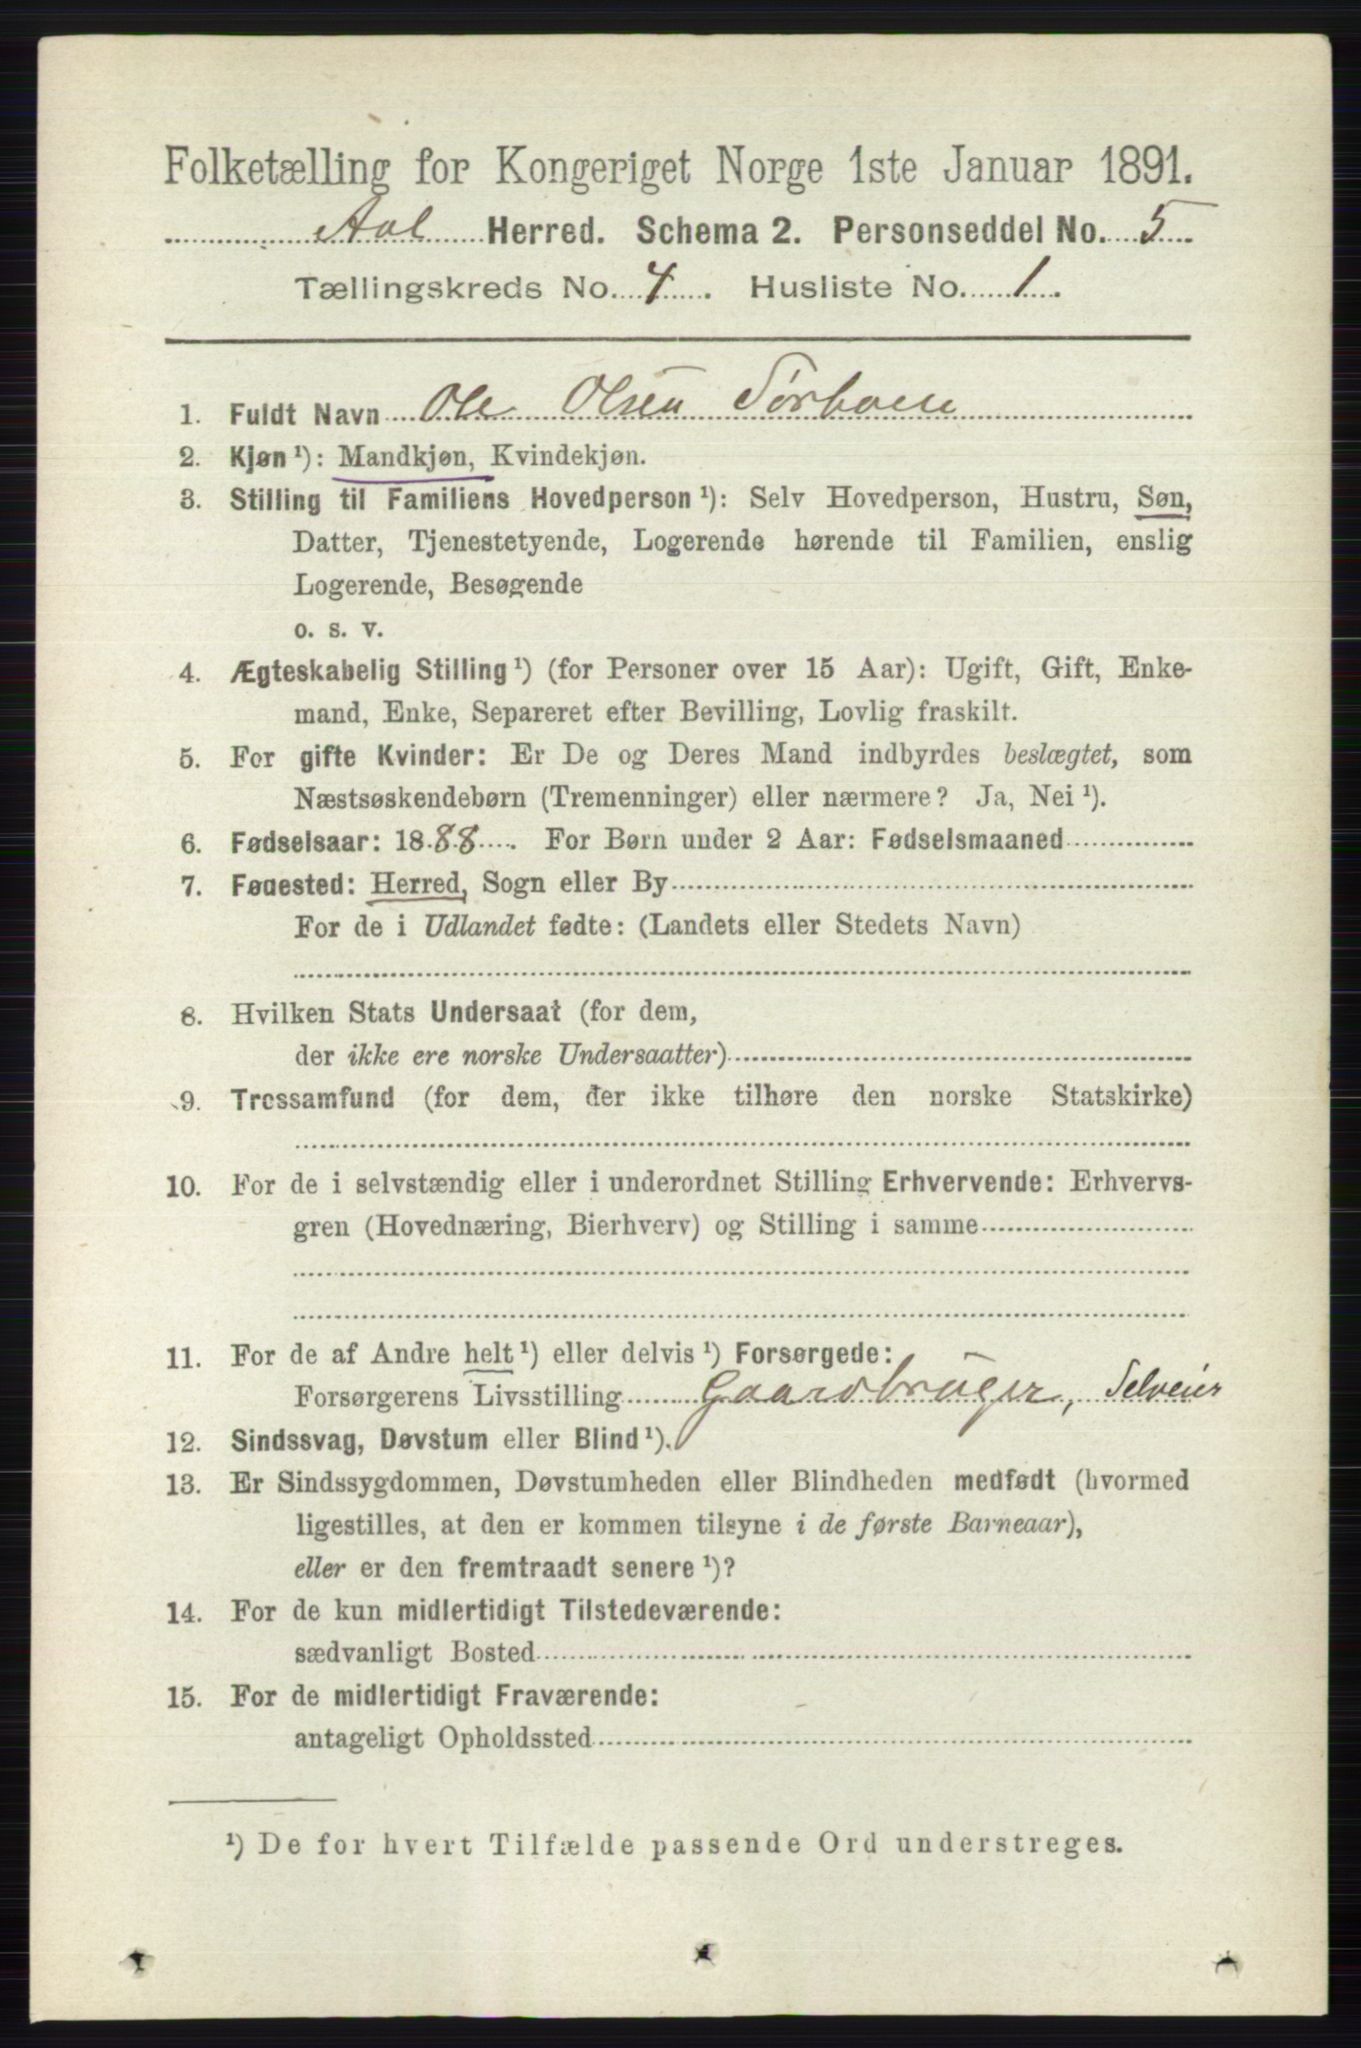 Folketælling for Kongeriget Norge 1ste Januar 1891.
Aal Herred. Schema 2. Personseddel No. 5
Tællingskreds No. 4. Husliste No. 1.
1. Fuldt Navn Ole Olsen
2. Kjøn ¹): Mandkjøn, Kvindekjøn.
3. Stilling til Familiens Hovedperson ¹): Selv Hovedperson, Hustru, Søn,
Datter, Tjenestetyende, Logerende hørende til Familien, enslig
Logerende, Besøgende
o. s. v.
4. Ægteskabelig Stilling ¹) (for Personer over 15 Aar): Ugift, Gift, Enke-
mand, Enke, Separeret efter Bevilling, Lovlig fraskilt.
5. For gifte Kvinder: Er De og Deres Mand indbyrdes beslægtet, som
Næstsøskendebørn (Tremenninger) eller nærmere? Ja, Nei ¹).
6. Fødselsaar: 1888. For Børn under 2 Aar: Fødselsmaaned
7. Fødested: Herred, Sogn eller By
For de i Udlandet fødte: (Landets eller Stedets Navn)
8. Hvilken Stats Undersaat (for dem,
der ikke ere norske Undersaatter)
9. Trossamfund (for dem, der ikke tilhøre den norske Statskirke)
10. For de i selvstændig eller i underordnet Stilling Erhvervende: Erhvervs-
gren (Hovednæring, Bierhverv) og Stilling i samme
11. For de af Andre helt ¹) eller delvis ¹) Forsørgede:
Forsørgerens Livsstilling Gaardbruger, Selveier
12. Sindssvag, Døvstum eller Blind ¹).
13. Er Sindssygdommen, Døvstumheden eller Blindheden medfødt (hvormed
ligestilles, at den er kommen tilsyne i de første Barneaar),
eller er den fremtraadt senere ¹)?
14. For de kun midlertidigt Tilstedeværende:
sædvanligt Bosted
15. For de midlertidigt Fraværende:
antageligt Opholdssted
¹) De for hvert Tilfælde passende Ord understreges.